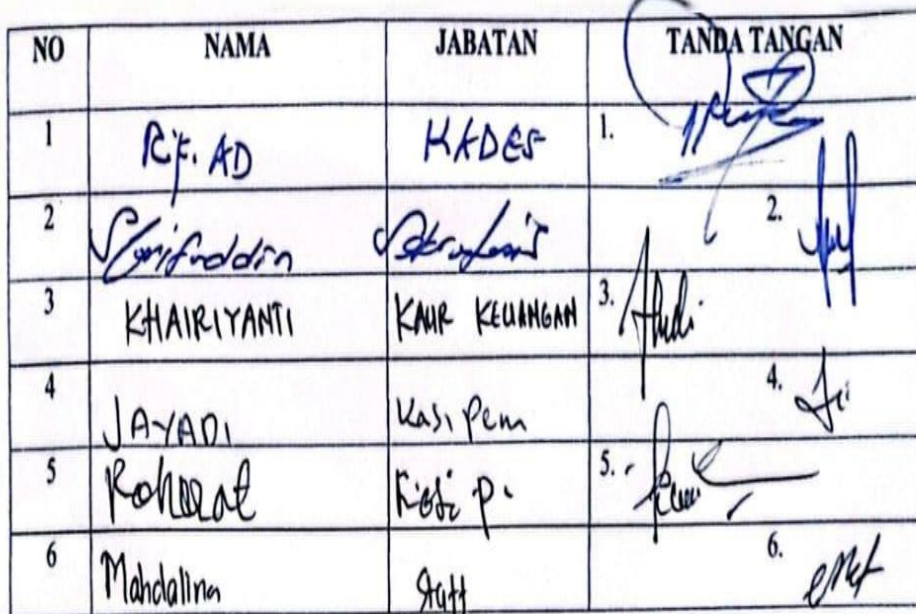 NO NAMA JABATAN TANDA TANGAN
1 AD KADES 1.
2 Syarifuddin 2.
3 KHAIRIYANTI KAUR KEUANGAN 3.
4 JAYADI Kasi Pem 4.
5 5.
6 Mahdalina Staff 6.